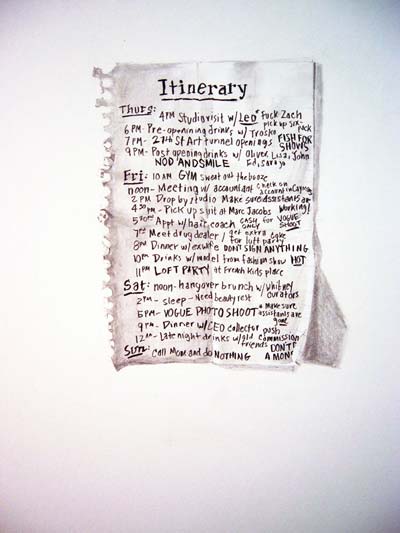 Itinerary
Thurs: 4PM Studio visit w/ LEO *Fuck Zach
pick up six-pack
6PM- Pre-openning drinks w/ Trosko
7PM- 27th St Art tunnel openings FISH FOR SHOWS
9PM- Post opening drinks w/ Oliver, Lizzi, John
NOD AND SMILE Ed, Saraya
Fri: 10AM GYM sweat out the booze
noon- Meeting w/ accountant check on account in Caymans
2PM Drop by studio Make sure assistants are working!
4:30PM - Pick up suit at Marc Jacobs
5:30PM Appt w/ hair coach CASH ONLY FOR VOGUE SHOOT
7PM Meet drug dealer / get extra coke for loft party
8PM Dinner w/ exwife DON'T SIGN ANYTHING
10PM Drinks w/ model from fashion show HOT
11PM LOFT PARTY at French kids place
Sat: noon- hangover brunch w/ Whitney curators
2PM- sleep - Need beauty rest
5PM- VOGUE PHOTO SHOOT *make sure assistants are gone
9PM- Dinner w/ CEO collector push commission
12AM- Late night drinks w/ old friends DON'T
Sun: Call Mom and do NOTHING